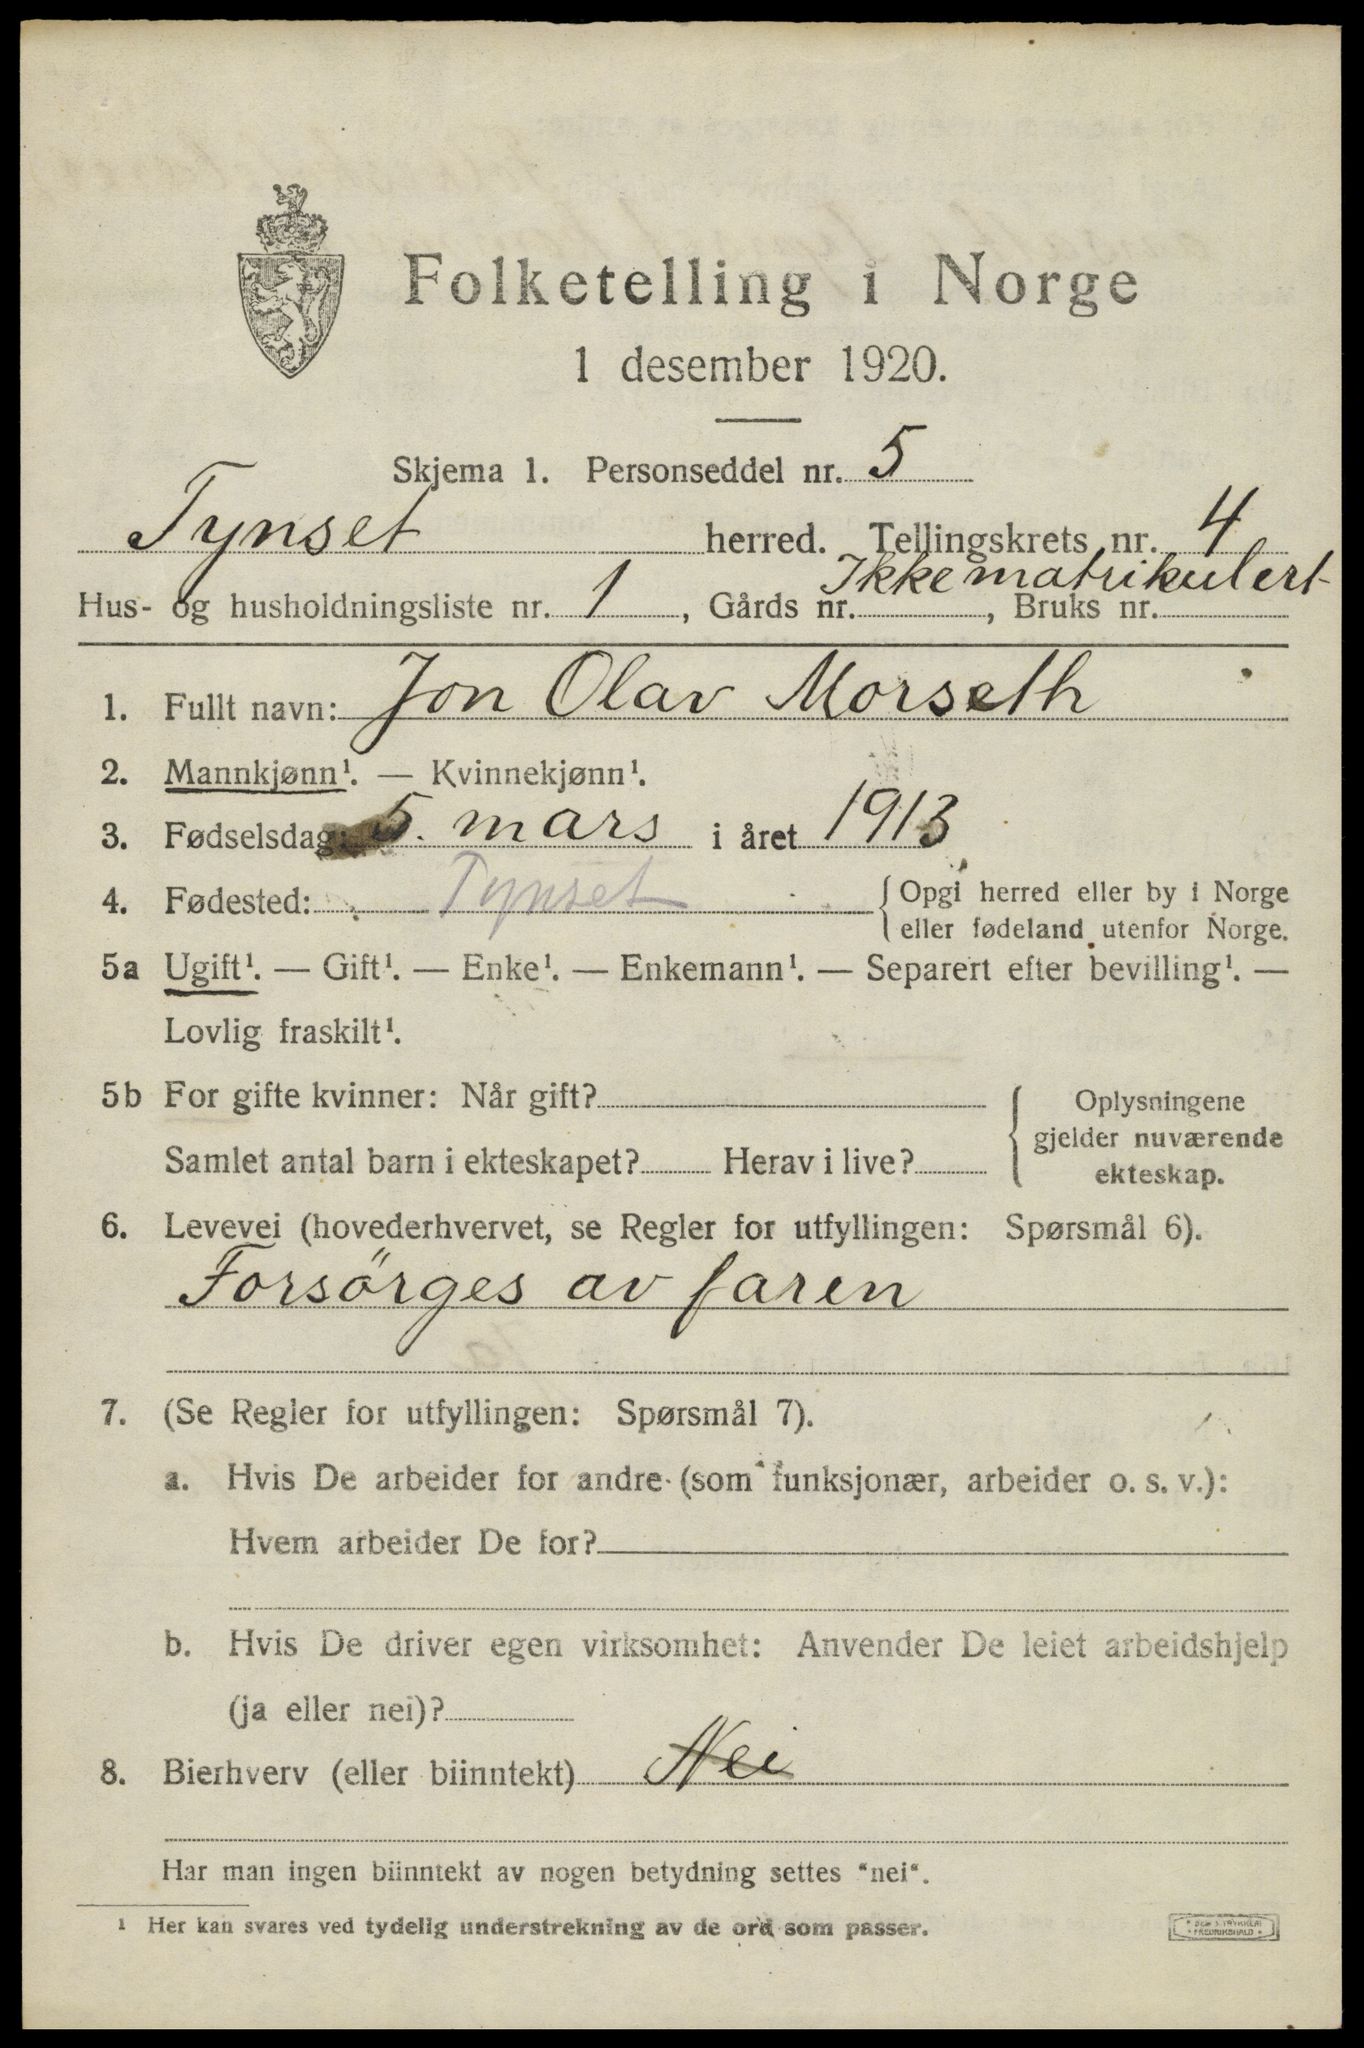 Folketelling i Norge
1 desember 1920.
Skjema 1. Personseddel nr. 5
Tynset herred. Tellingskrets nr. 4
Ikke matrikulert
Hus- og husholdningsliste nr. 1, Gårds nr. , Bruks nr.
1. Fullt navn: Jon Olav Morseth
2. Mannkjønn¹. — Kvinnekjønn¹.
3. Fødselsdag: 5. mars i året 1913
4. Fødested: Tynset { Opgi herred eller by i Norge
eller fødeland utenfor Norge.
5a Ugift¹. — Gift¹. — Enke¹. — Enkemann¹. — Separert efter bevilling¹. —
Lovlig fraskilt¹.
5b For gifte kvinner: Når gift?
Samlet antal barn i ekteskapet? Herav i live?
{ Oplysningene
gjelder nuværende
ekteskap.
6. Levevei (hovederhvervet, se Regler for utfyllingen: Spørsmål 6).
Forsörges av faren
7. (Se Regler for utfyllingen: Spørsmål 7).
a. Hvis De arbeider for andre (som funksjonær, arbeider o. s. v.):
Hvem arbeider De for?
b. Hvis De driver egen virksomhet: Anvender De leiet arbeidshjelp
(ja eller nei)?
8. Bierhverv (eller biinntekt) Nei
Har man ingen biinntekt av nogen betydning settes “nei“.
¹ Her kan svares ved tydelig understrekning av de ord som passer.
FREDRIKSHALD